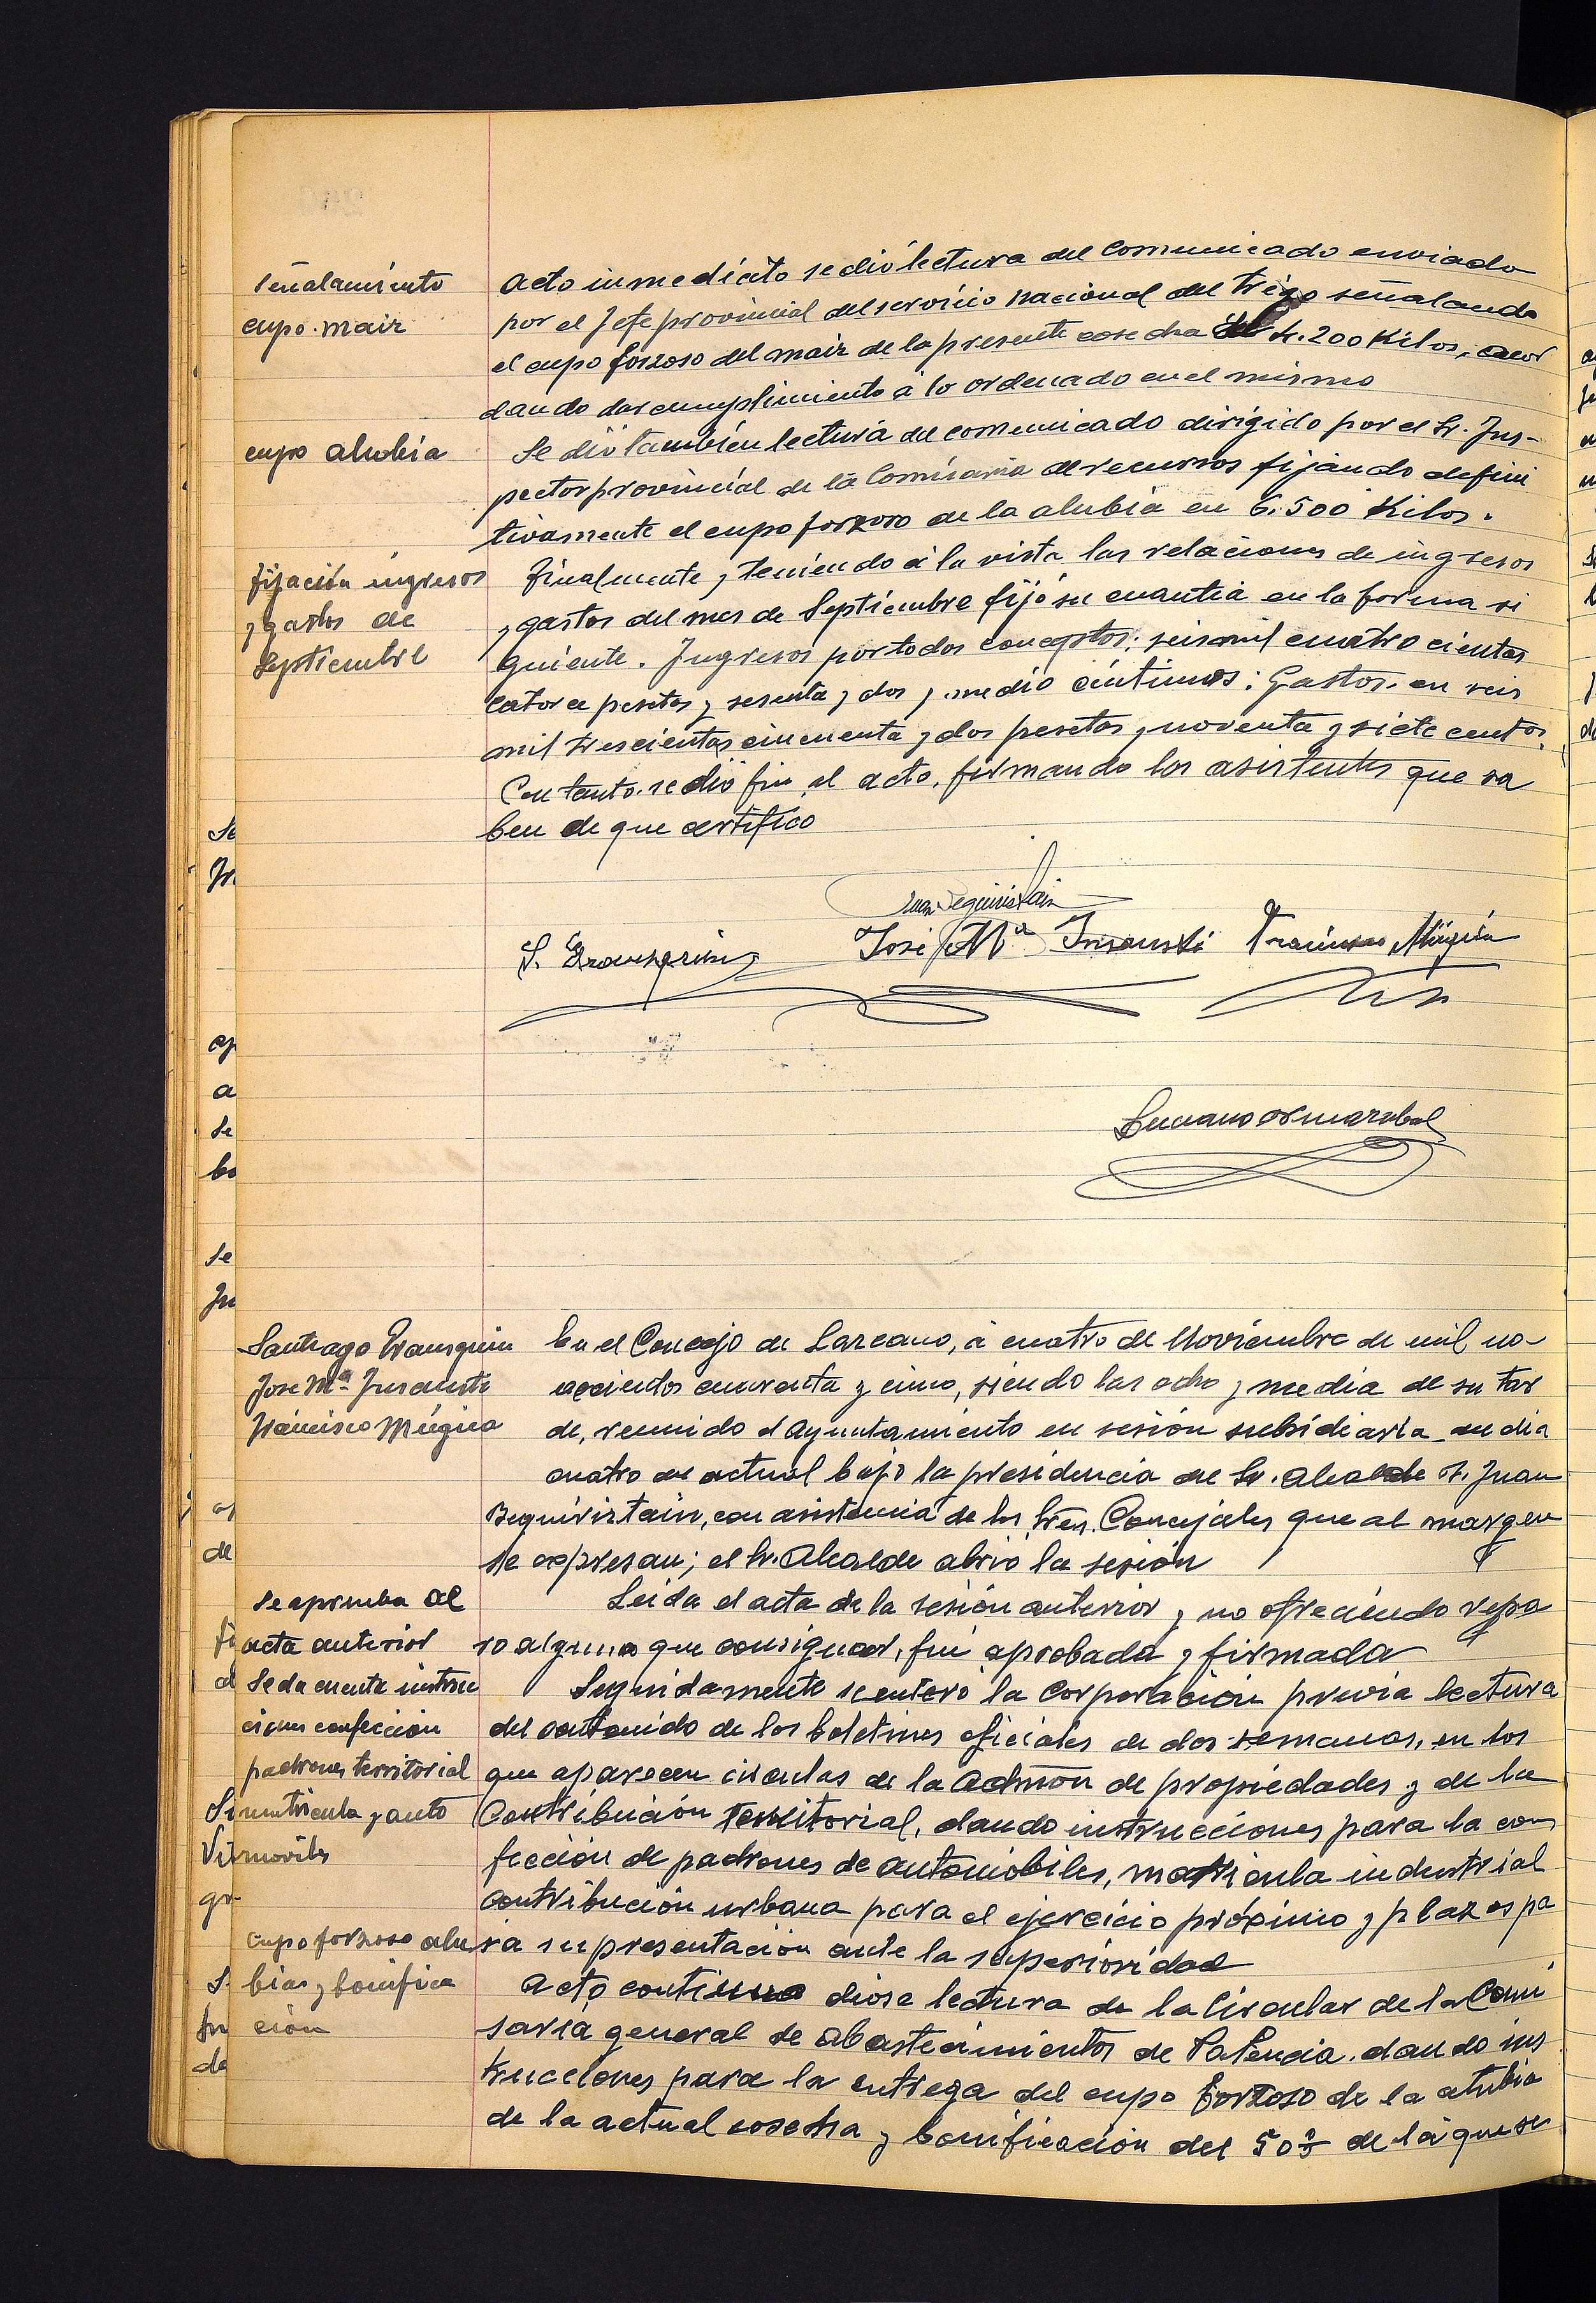 señalamiento
cupo. maiz
Acto inmediato se dió lectura del comunicado enviado
por el Jefe provincial del servicio nacional del trigo señalando
el cupo forzoso del maiz de la presente cosecha 4.200 Kilos, acor
dando dar cumplimiento á lo ordenado en el mismo
cupo alubia
Se dió también lectura del comunicado dirigido por el Sr. Ins-
pector provincial de la Comisaria de recursos fijando defini
tivamente el cupo forzoso de la alubia en 6.500 Kilos.
fijación ingresos
y gastos de
Septiembre
Finalmente y teniendo á la vista las relaciones de ingresos
y gastos del mes de Septiembre fijó su cuantia en la forma si
guiente. Ingresos por todos conceptos: seis mil cuatro cientas
catorce pesetas y sesenta y dos y medio céntimos: Gastos en seis
mil trescientas cincuenta y dos pesetas y noventa y siete centos.
Con tanto se dió fin al acto, firmando los asistentes que sa
ben de que certifico
Juan Beguiristain
José Mª Insausti Francisco Múgica
Luciano Ormazabal
Santiago Iraurquin
Jose Mª Insausti
Francisco Múgica
En el Concejo de Lazcano, á cuatro de Noviembre de mil no-
vecientos cuarenta y cinco, siendo las ocho y media de su tar
de, reunido el Ayuntamiento en sesión subsidiaria del dia
cuatro del actual bajo la presidencia del Sr. Alcalde D. Juan
Beguiriztain, con asistencia de los Sres. Concejales que al margen
se expresan; el Sr. Alcalde abrió la sesión
Se aprueba el
acta anterior
Leida el acta de la sesión anterior y no ofreciendo repa
ro alguno que consignar, fué aprobada y firmada
Se da cuenta instruc
ciones confección
padrones territorial
matricula y auto
moviles
Seguidamente se enteró la Corporación previa lectura
del contenido de los boletines oficiales de dos semanas, en los
que aparecen circulas de la Admon de propiedades y de la
Contribución territorial, dando instrucciones para la con
fección de padrones de automobiles, matricula industrial
contribución urbana para el ejercicio próximo y plazos pa
ra su presentación ante la superioridad
cupo forzoso alu
bias y bonifica
ción
Acto continuo diose lectura de la Circular de la Comi
saria general de Abastecimientos de Palencia. dando ins
trucciones para la entrega del cupo forzoso de la alubia
de la actual cosecha y bonificación del 50% de la que se